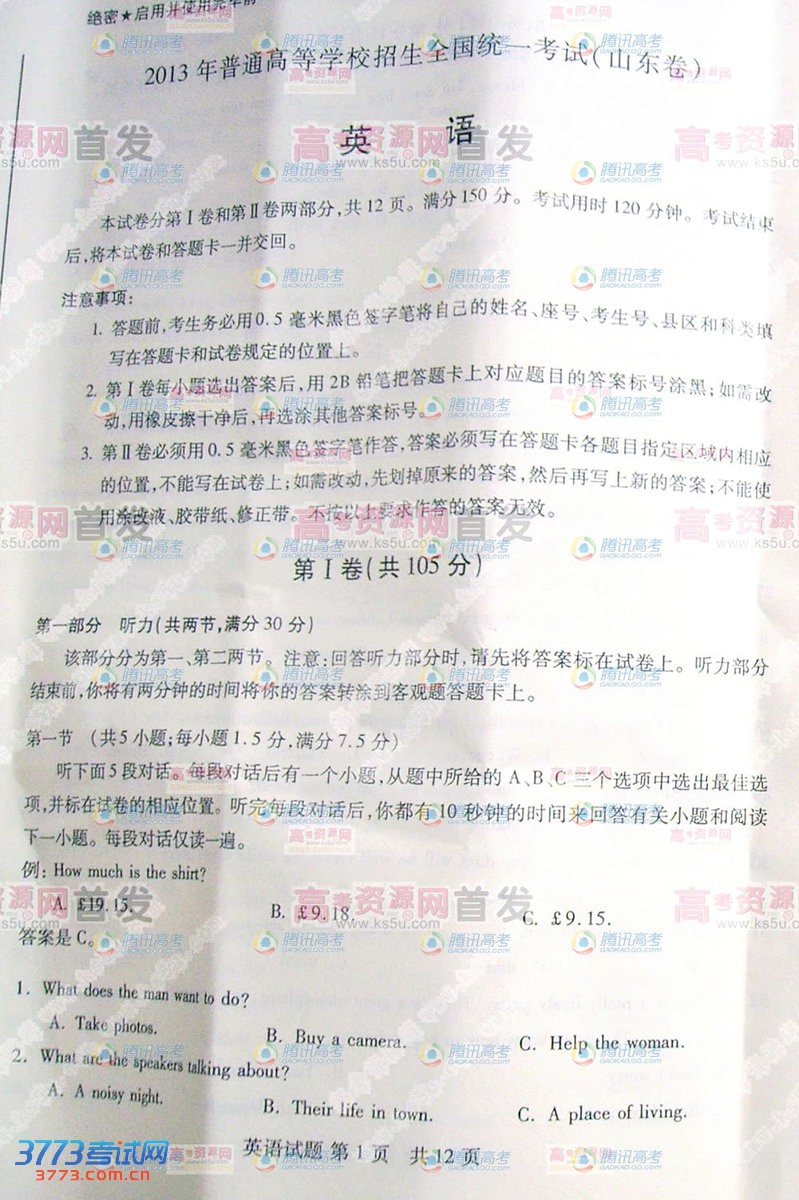 绝密★启用并使用完毕前
2013年普通高等学校招生全国统一考试(山东卷)
英 语
本试卷分第Ⅰ卷和第Ⅱ卷两部分,共12页。满分150分。考试用时120分钟。考试结束
后,将本试卷和答题卡一并交回。
注意事项:
1. 答题前,考生务必用0.5毫米黑色签字笔将自己的姓名、座号、考生号、县区和科类填
写在答题卡和试卷规定的位置上。
2. 第Ⅰ卷每小题选出答案后,用2B铅笔把答题卡上对应题目的答案标号涂黑;如需改
动,用橡皮擦干净后,再选涂其他答案标号。
3. 第Ⅱ卷必须用0.5毫米黑色签字笔作答,答案必须写在答题卡各题目指定区域内相应
的位置,不能写在试卷上;如需改动,先划掉原来的答案,然后再写上新的答案;不能使
用涂改液、胶带纸、修正带。不按以上要求作答的答案无效。
第Ⅰ卷(共105分)
第一部分 听力(共两节,满分30分)
该部分分为第一、第二两节。注意:回答听力部分时,请先将答案标在试卷上。听力部分
结束前,你将有两分钟的时间将你的答案转涂到客观题答题卡上。
第一节 (共5小题;每小题1.5分,满分7.5分)
听下面5段对话。每段对话后有一个小题,从题中所给的A、B、C三个选项中选出最佳选
项,并标在试卷的相应位置。听完每段对话后,你都有10秒钟的时间来回答有关小题和阅读
下一小题。每段对话仅读一遍。
例: How much is the shirt?
A. £19.15. B. £9.18. C. £9.15.
答案是C。
1. What does the man want to do?
A. Take photos. B. Buy a camera. C. Help the woman.
2. What are the speakers talking about?
A. A noisy night. B. Their life in town. C. A place of living.
英语试题 第1页 共12页
3773考试网
3773.com.cn
高考资源网首发
www.ks5u.com
腾讯高考
GAOKAO.QQ.COM